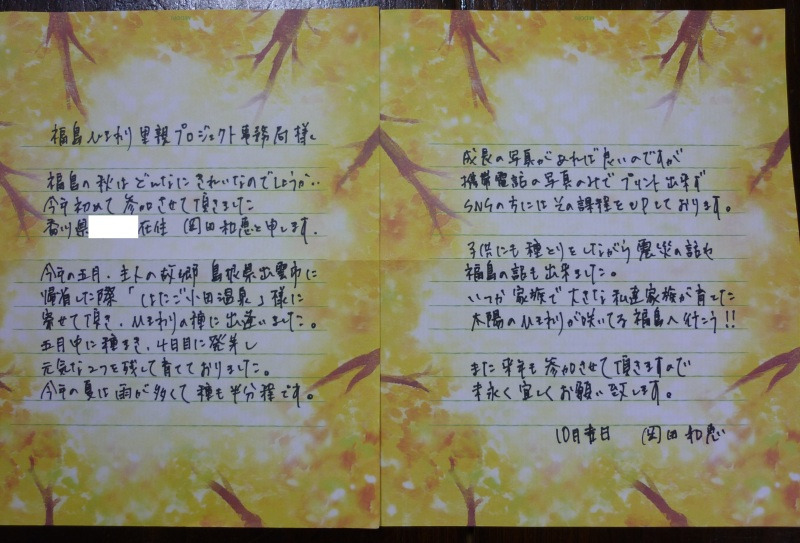 福島ひまわり里親プロジェクト事務局様へ
福島の秋はどんなにきれいなのでしょうか..
今年初めて参加させて頂きました
香川県 在住 岡田和恵と申します.
今年の五月.主人の故郷 島根県出雲市に
帰省した際「はたご小田温泉」様に
寄せて頂き.ひまわりの種に出逢いました。
五月中に種まき.4日目に発芽し
元気な2つを残して育てておりました。
今年の夏は雨が多くて種も半分程です。
成長の写真があれば良いのですが
携帯電話の写真のみでプリント出来ず
SNSの方にはその課程をUPしております。
子供にも種とりをしながら震災の話や
福島の話も出来ました。
いつか家族で大きな私達家族が育てた
太陽のひまわりが咲いてる福島へ行こう!!
また来年も参加させて頂きますので
末永く宜しくお願い致します。
10月 日 岡田和恵